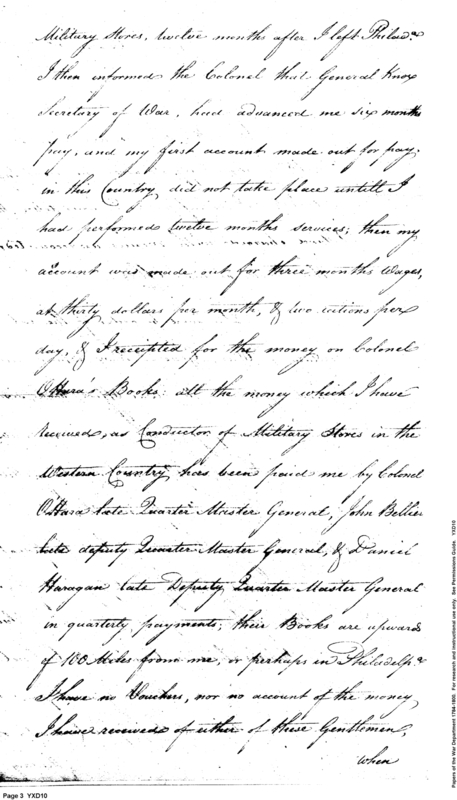 Military Stores, twelve months after I left Philada
I then informed the Colonel that General Knox
Secretary of War, had advanced me six months
pay, and my first account made out for pay
in this Country did not take place untill I
had performed twelve months services; then my
account was made out for three months wages,
at thirty dollars per month, & two rations per
day, & I receipted for the money on Colonel
OHara's Books. all the money which I have
received, as Conductor of Military Stores in the
Western Country, has been paid me by Colonel
OHara late Quarter Master General, John Bellier
late deputy Quarter Master General, & Daniel
Haragan late Deputy Quarter Master General
in quarterly payments; their Books are upwards
of 100 Miles from me, or perhaps in Philadelpa
I have no Vouchers, nor no account of the money
I have received of either of these Gentlemen,
when
Page 3 YXD10
Papers of the War Department 1784-1800. For research and instructional use only. See Permissions Guide. YXD10